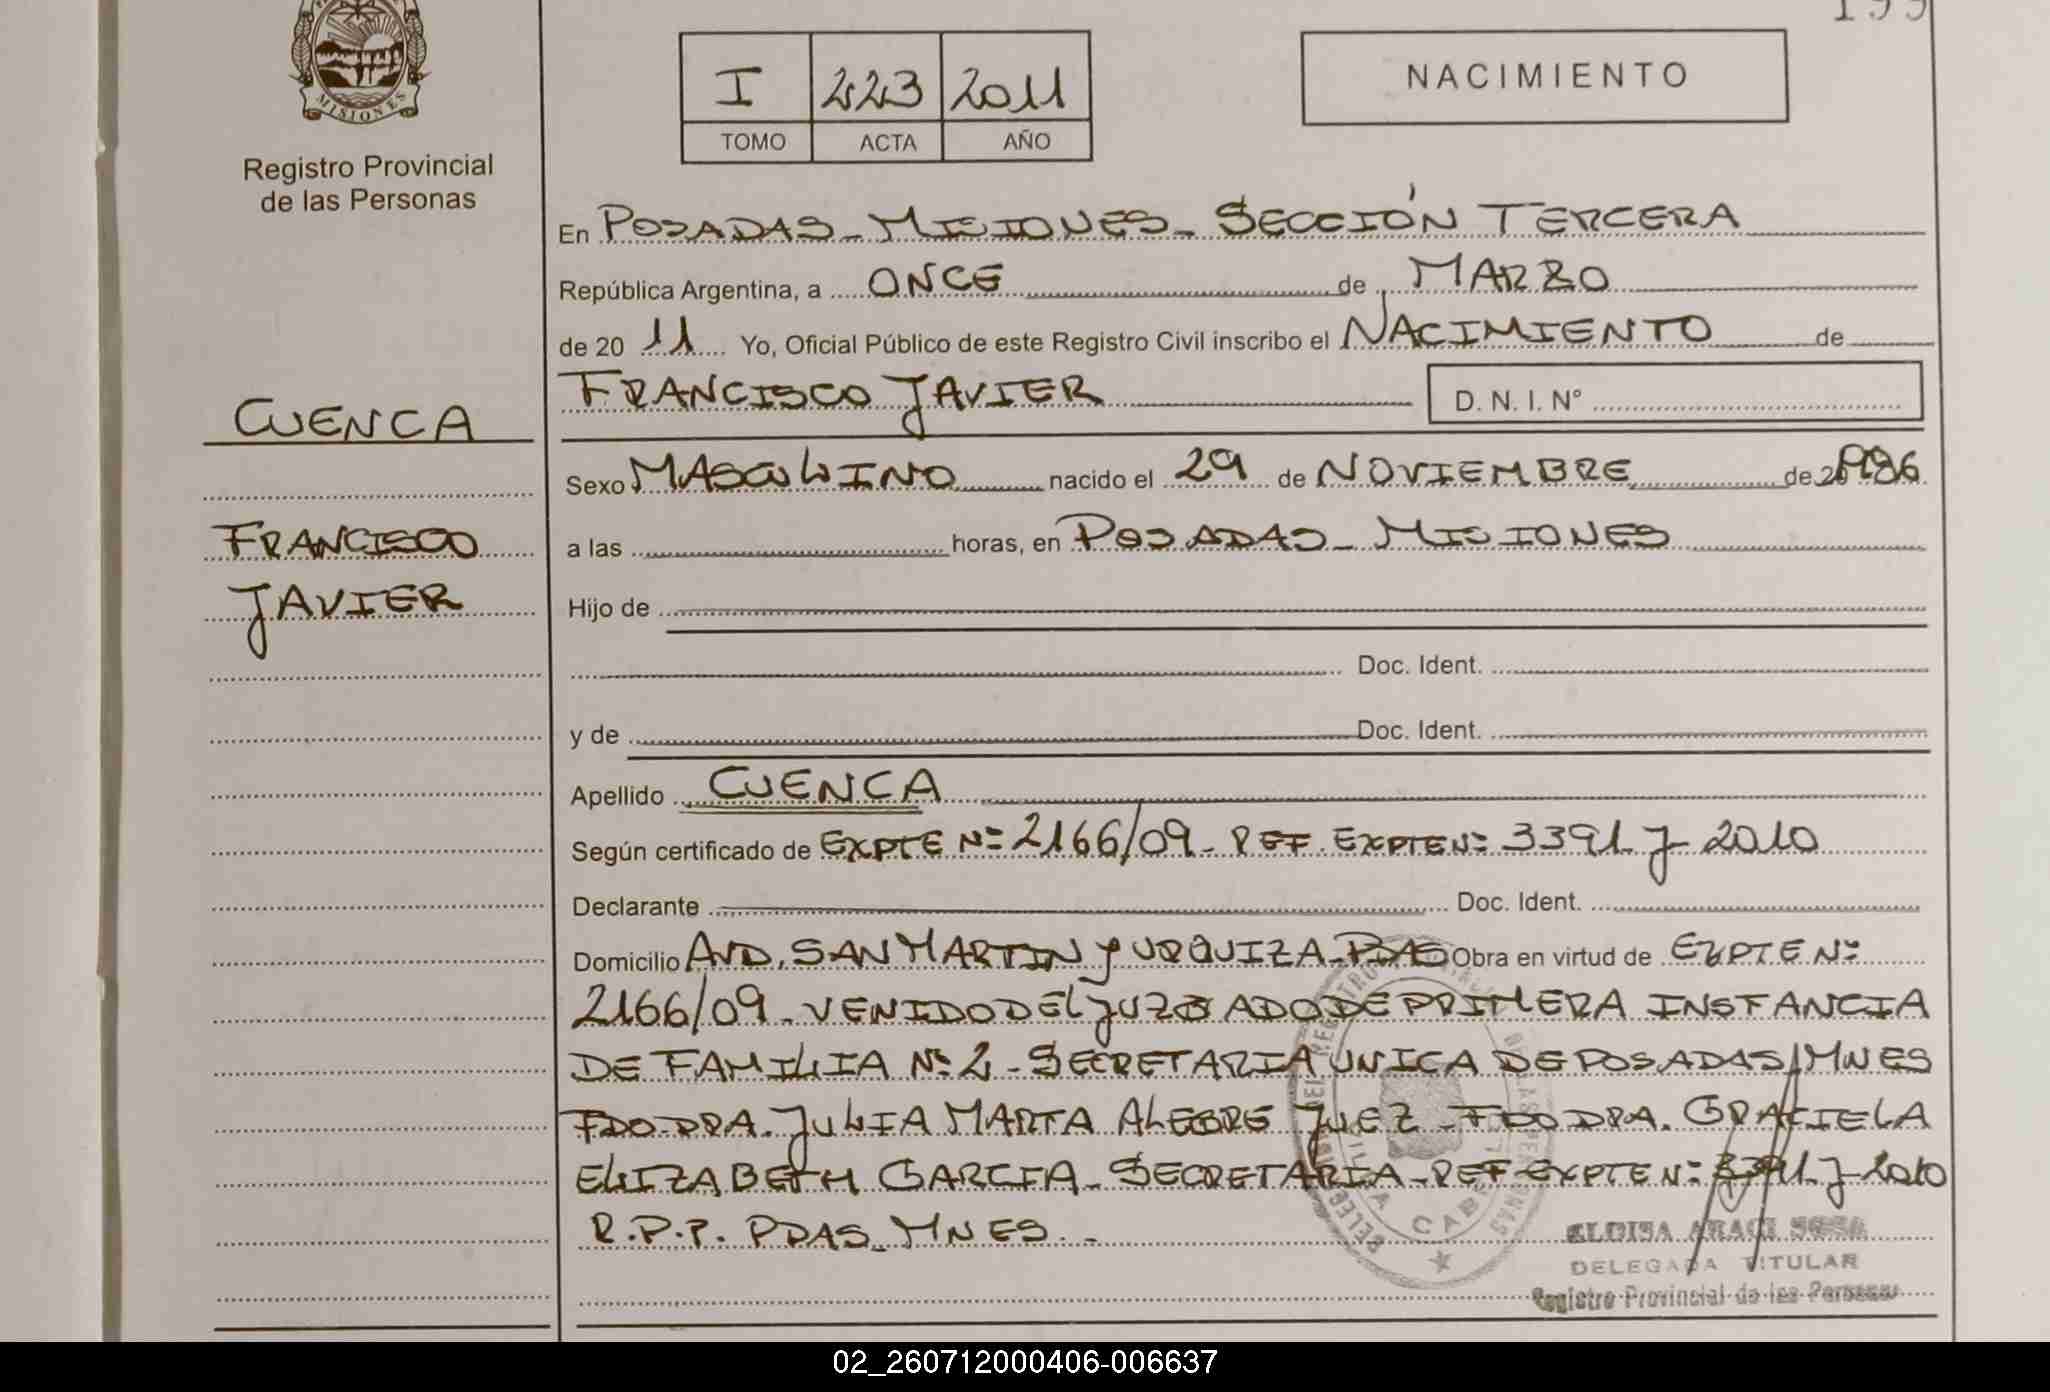 199
MISIONES
Registro Provincial
de las Personas
I 223 2011
TOMO ACTA AÑO
NACIMIENTO
En POSADAS - MISIONES - SECCIÓN TERCERA
República Argentina, a ONCE de MARZO
de 20 11 Yo, Oficial Público de este Registro Civil inscribo el NACIMIENTO de
FRANCISCO JAVIER D. N. I. N°
CUENCA
FRANCISCO
JAVIER
Sexo MASCULINO nacido el 29 de NOVIEMBRE de 1986
a las horas, en POSADAS - MISIONES
Hijo de
Doc. Ident.
y de Doc. Ident.
Apellido CUENCA
Según certificado de EXPTE Nº 2166/09 - REF. EXPTE Nº 3391-J-2010
Declarante Doc. Ident.
Domicilio AVD. SAN MARTIN y URQUIZA - PDAS Obra en virtud de EXPTE Nº
2166/09 - VENIDO DEL JUZGADO DE PRIMERA INSTANCIA
DE FAMILIA Nº 2 - SECRETARIA UNICA DE POSADAS/MNES
FDO. DRA. JULIA MARTA ALEGRE JUEZ - FDO DRA. GRACIELA
ELIZABETH GARCIA - SECRETARIA - REF EXPTE Nº 3391-J-2010
R.P.P. PDAS - MNES. -
ELOISA ARACI SOSA
DELEGADA TITULAR
Registro Provincial de las Personas
02_260712000406-006637